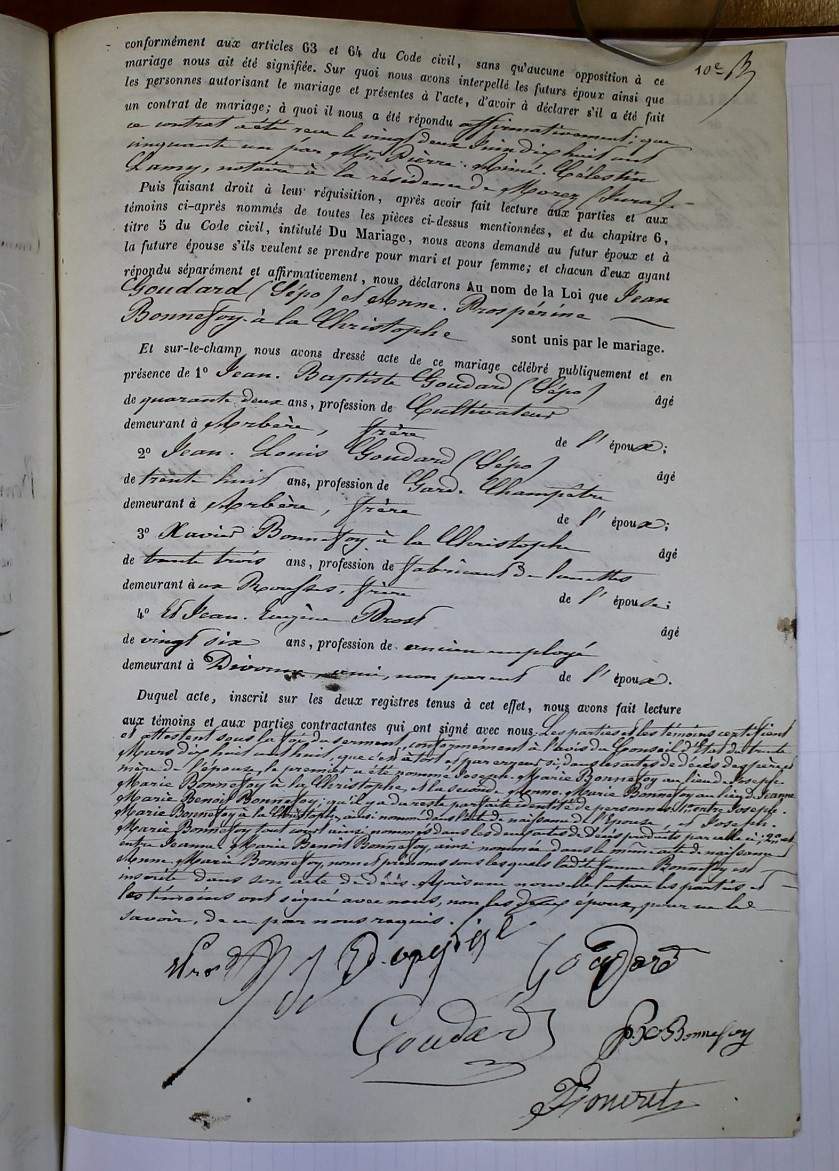 10e
conformément aux articles 63 et 64 du Code civil, sans qu'aucune opposition à ce
mariage nous ait été signifiée. Sur quoi nous avons interpellé les futurs époux ainsi que
les personnes autorisant le mariage et présentes à l'acte, d'avoir à déclarer s'il a été fait
un contrat de mariage; à quoi il nous a été répondu affirmativement; que
ce contrat a été reçu le vingt deux Juin dix huit cent
cinquante un par Me Pierre. Aimé. Célestin
Lamy, notaire à la résidence de Morez (Jura).
Puis faisant droit à leur réquisition, après avoir fait lecture aux parties et aux
témoins ci-après nommés de toutes les pièces ci-dessus mentionnées, et du chapitre 6,
titre 5 du Code civil, intitulé Du Mariage, nous avons demandé au futur époux et à
la future épouse s'ils veulent se prendre pour mari et pour femme; et chacun d'eux ayant
répondu séparément et affirmativement, nous déclarons Au nom de la Loi que Jean
Goudard (Sépo) et Anne. Prospérine
Bonnefoy. à la Christophe sont unis par le mariage.
Et sur-le-champ nous avons dressé acte de ce mariage célébré publiquement et en
présence de 1º Jean. Baptiste Goudard (Sépo) âgé
de quarante deux ans, profession de Cultivateur
demeurant à Arbère, frère de l'époux;
2º Jean. Louis Goudard (Sépo) âgé
de trente huit ans, profession de Gard. Champêtre
demeurant à Arbère, frère de l'époux;
3º Xavier Bonnefoy à la Christophe âgé
de trente trois ans, profession de fabricant de lunettes
demeurant à ux Rousses, frère de l'épouse;
4º Et Jean. Eugène Brost âgé
de vingt six ans, profession de ancien employé
demeurant à Divonne, ami, non parent de l'époux.
Duquel acte, inscrit sur les deux registres tenus à cet effet, nous avons fait lecture
aux témoins et aux parties contractantes qui ont signé avec nous. Les parties et les témoins certifient
et attestent sous la foi du serment, conformément à l'avis du Conseil d'Etat du trente
Mars dix huit cent huit, que c'est à tort et par erreur si, dans les actes de décès des père et
mère de l'épouse, le premier a été nommé Joseph. Marie Bonnefoy au lieu de Joseph.
Marie Bonnefoy à la Christophe, et la seconde Anne. Marie Bonnefoy au lieu de Jeanne
Marie Benoit Bonnefoy; qu'il y a du reste parfaite identité de personnes entre Joseph.
Marie Bonnefoy à la Christophe, ainsi nommé dans l'acte de naissance de l'Epouse et Joseph.
Marie Bonnefoy tout court ainsi nommé dans les actes de décès produits par celle ci, et
entre Jeanne. Marie Benoit Bonnefoy, ainsi nommée dans le même acte de naissance et
Anne. Marie Bonnefoy, nom et prénoms sous lesquels la dite femme Bonnefoy est
inscrite dans son acte de décès. Après une nouvelle lecture les parties et
les témoins ont signé avec nous, non les deux époux, pour ne le
savoir, de ce par nous requis.
Goudard
Goudard
Bonnefoy